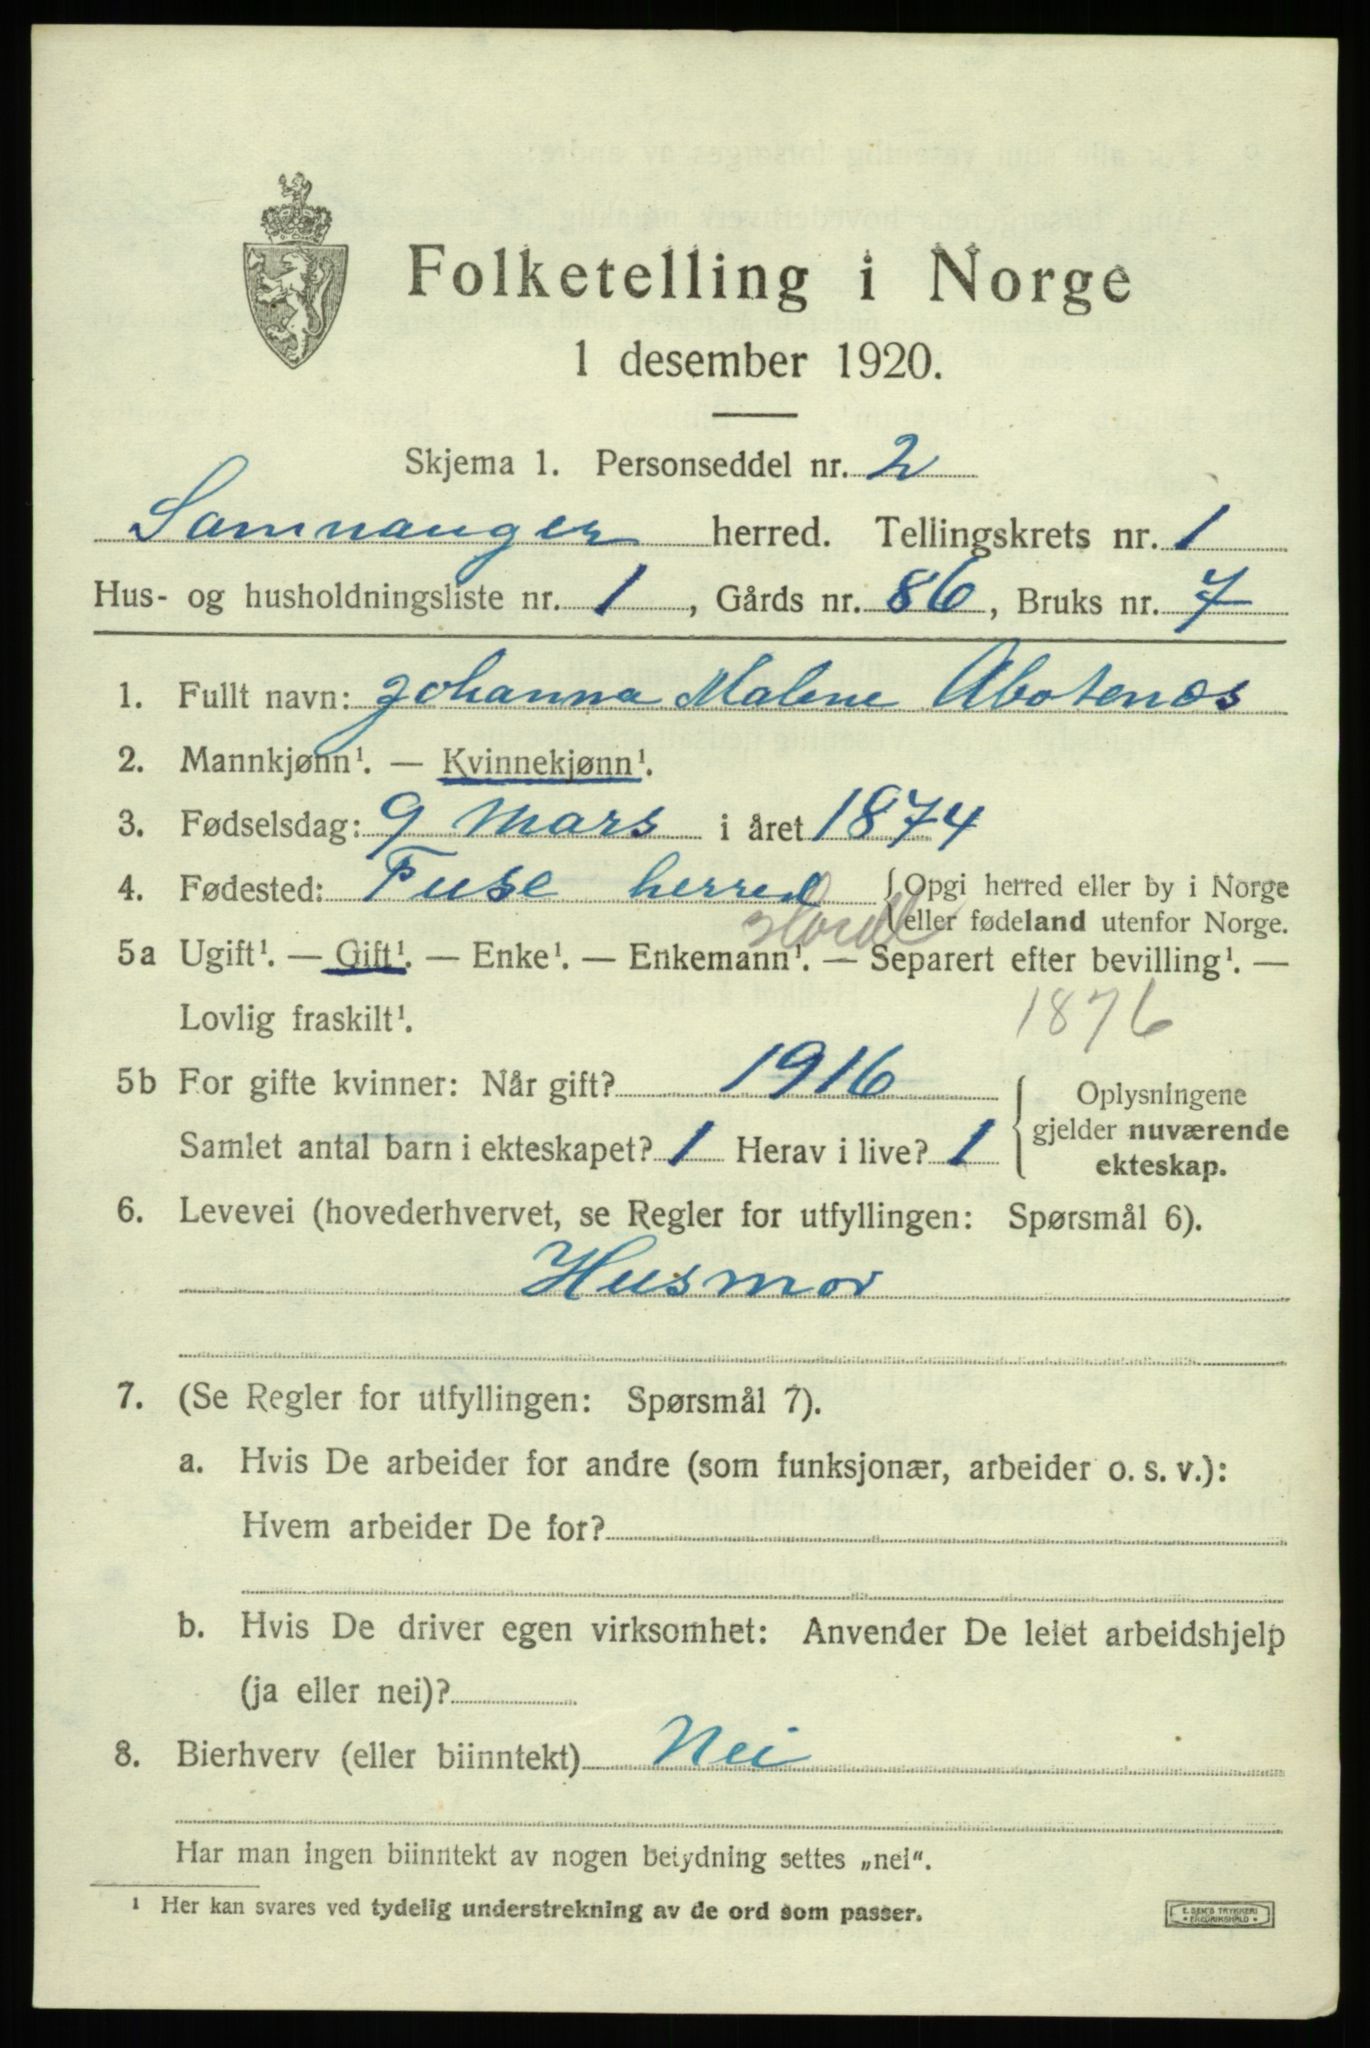 Folketelling i Norge
1 desember 1920.
Skjema 1. Personseddel nr. 2
Samnanger herred. Tellingskrets nr. 1
Hus- og husholdningsliste nr. 1, Gårds nr. 86, Bruks nr. 7
1. Fullt navn: Johanna Malene Abotenæs
2. Mannkjønn¹. — Kvinnekjønn¹.
3. Fødselsdag: 9 Mars i året 1874
4. Fødested: Fuse herred { Opgi herred eller by i Norge
eller fødeland utenfor Norge.
Hordl
5a Ugift¹. — Gift¹. — Enke¹. — Enkemann¹. — Separert efter bevilling¹. —
Lovlig fraskilt¹.
1876
5b For gifte kvinner: Når gift? 1916 { Oplysningene
gjelder nuværende
Samlet antal barn i ekteskapet? 1 Herav i live? 1
ekteskap.
6. Levevei (hovederhvervet, se Regler for utfyllingen: Spørsmål 6).
Husmor
7. (Se Regler for utfyllingen: Spørsmål 7).
a. Hvis De arbeider for andre (som funksjonær, arbeider o. s. v.):
Hvem arbeider De for?
b. Hvis De driver egen virksomhet: Anvender De leiet arbeidshjelp
(ja eller nei)?
8. Bierhverv (eller biinntekt) Nei
Har man ingen biinntekt av nogen betydning settes „nei“.
¹ Her kan svares ved tydelig understrekning av de ord som passer.
E. SEM'S TRYKKERI
FREDRIKSHALD